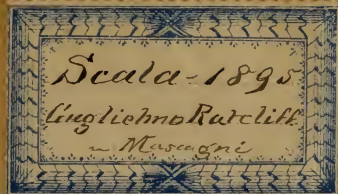 Scala - 1895
Guglielmo Ratcliff
Mascagni